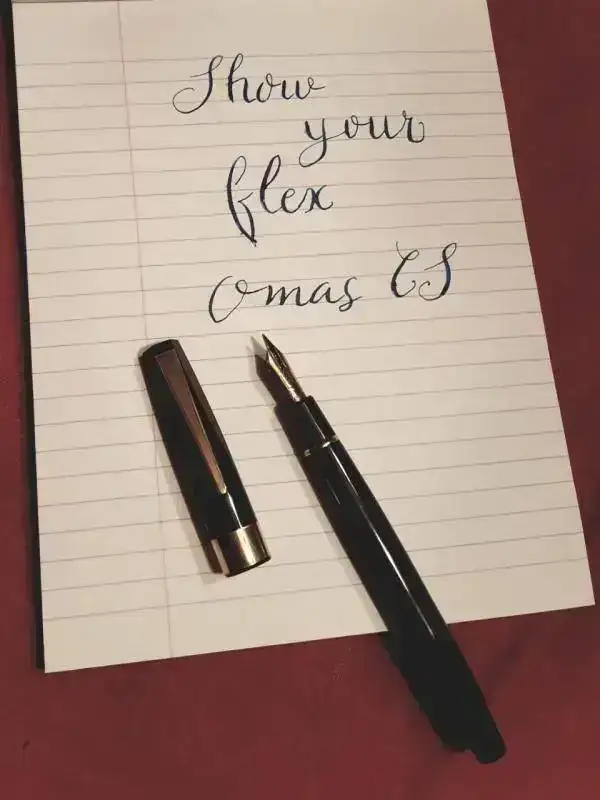 Show
your
flex
Omas CS